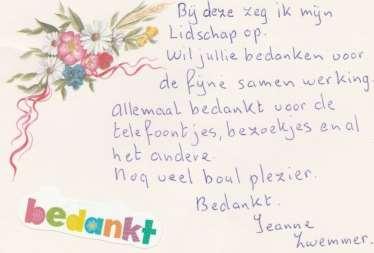 Bij deze zeg ik mijn
Lidschap op.
Wil jullie bedanken voor
de fijne samen werking.
Allemaal bedankt voor de
telefoontjes, bezoekjes en al
het andere.
Nog veel boul plezier.
Bedankt.
Jeanne
Zwemmer.
bedankt